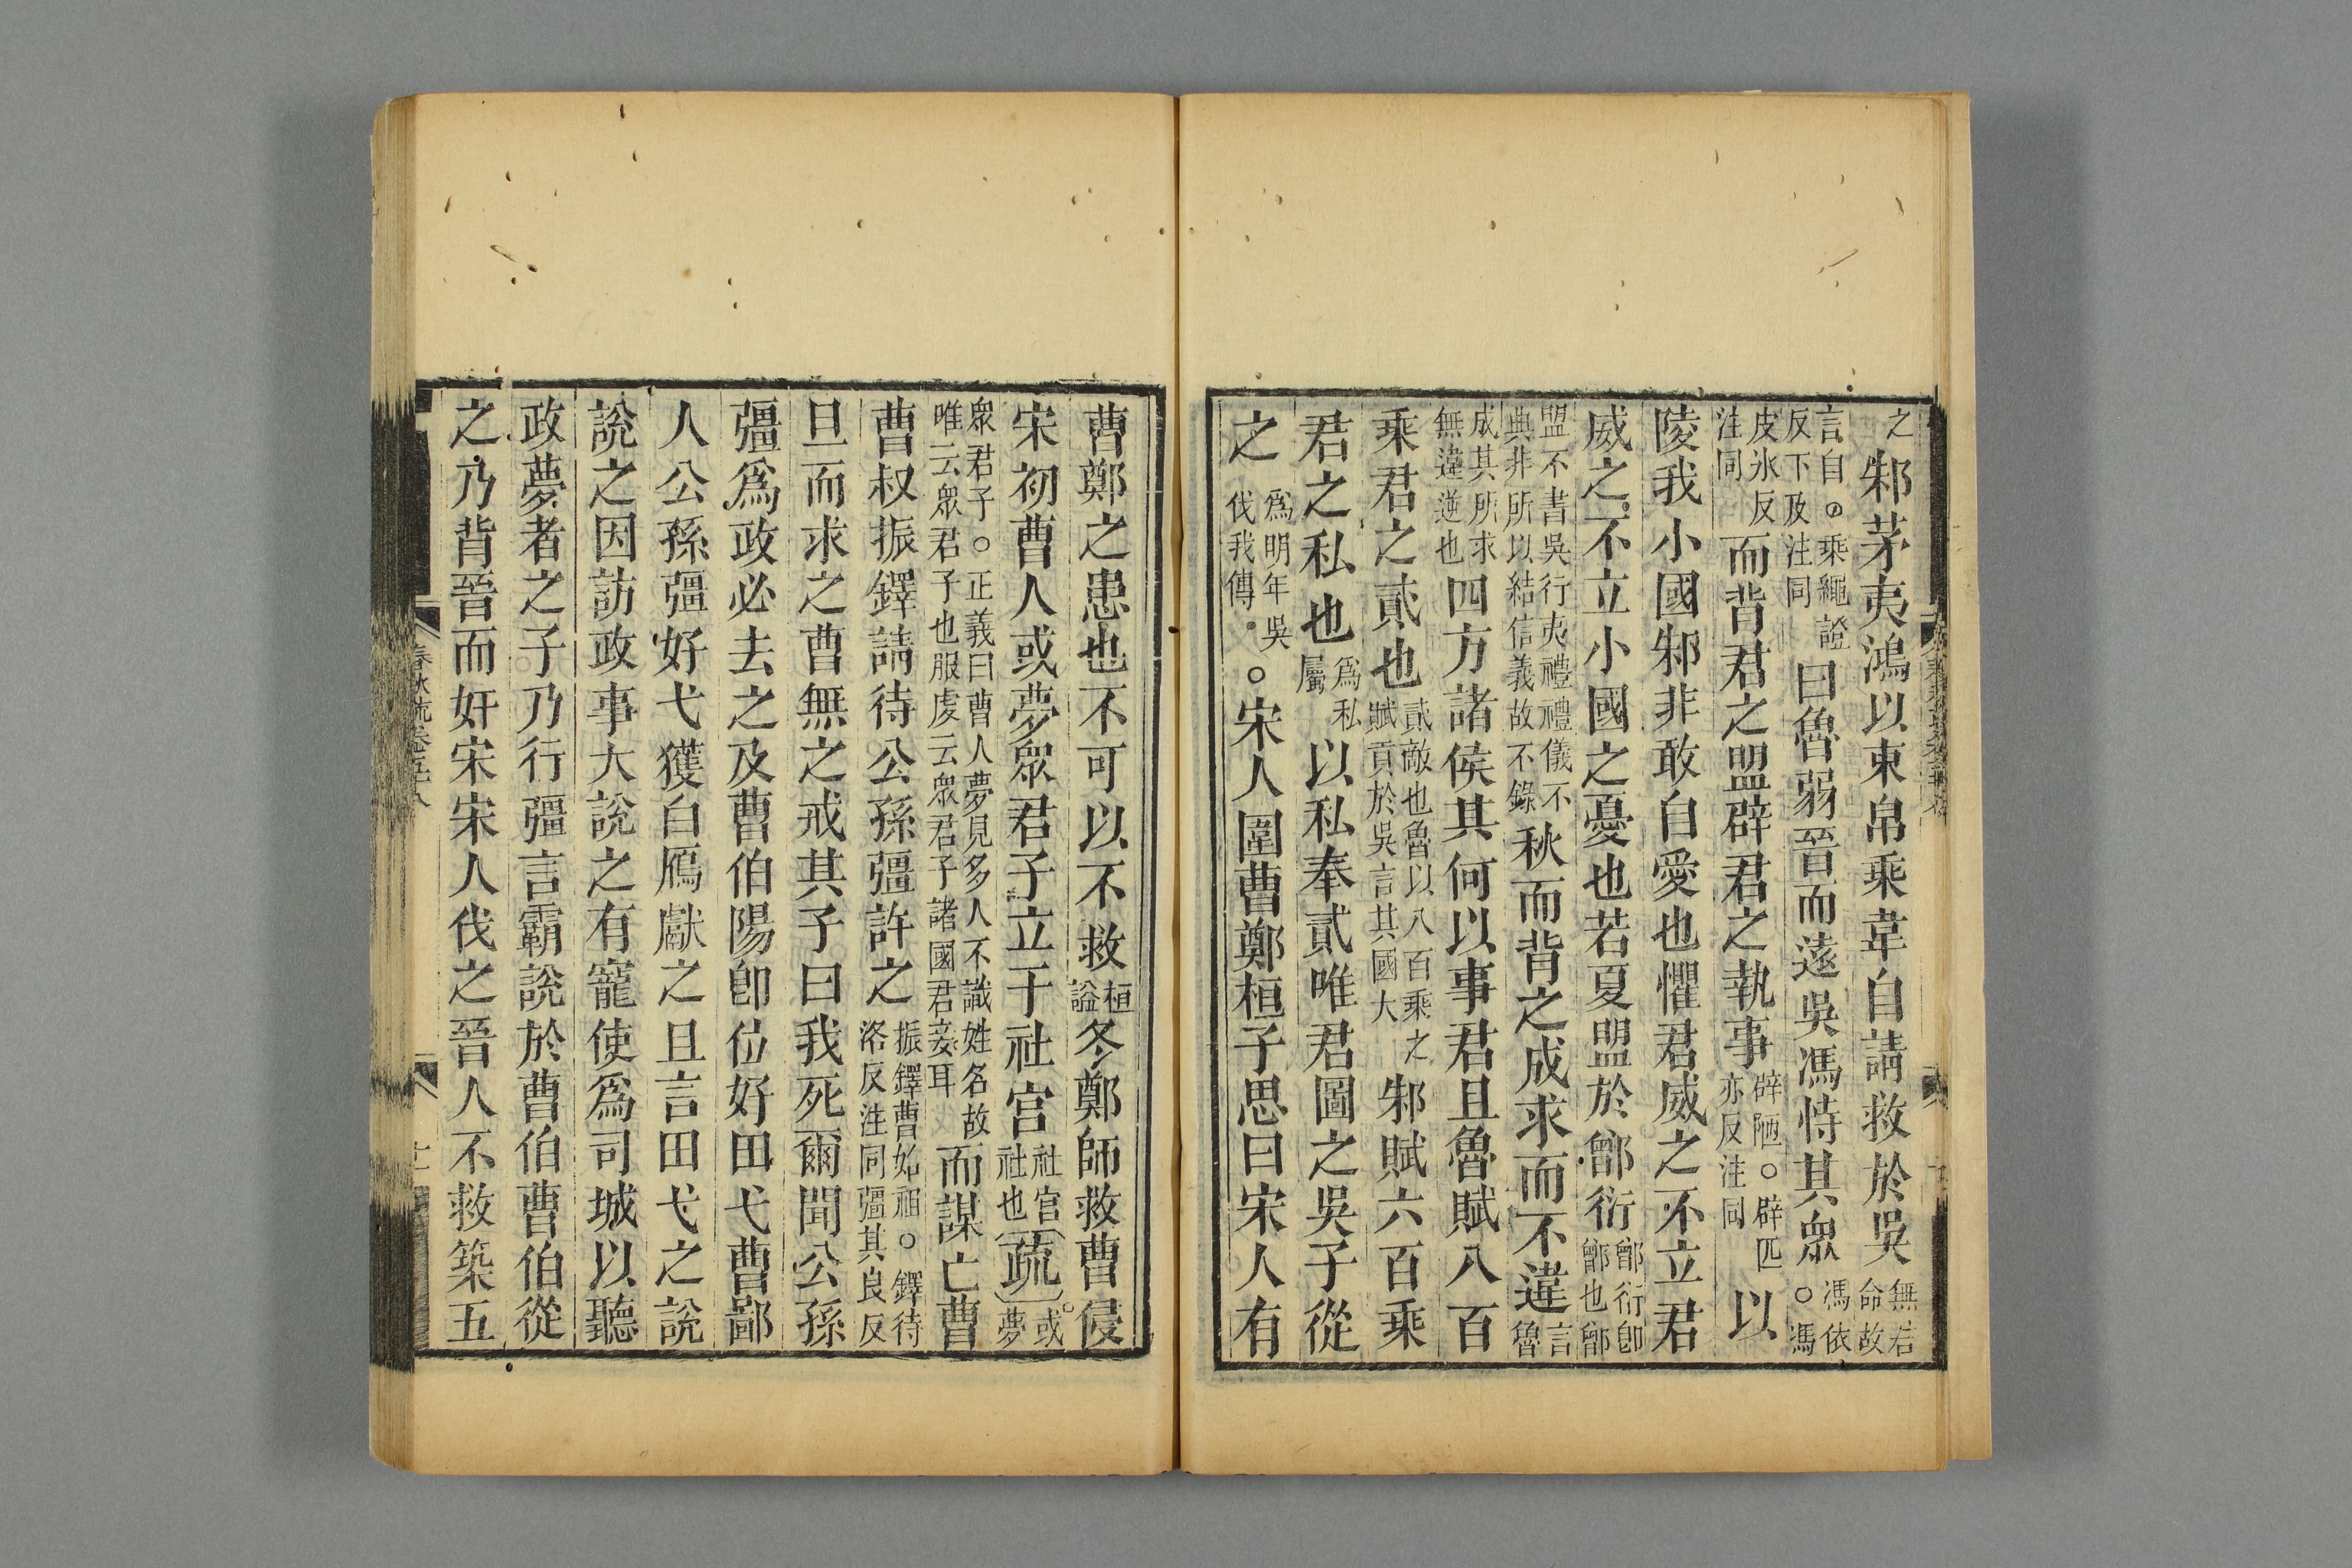 之邾茅夷鴻以束帛乘韋自請救於吳無君命故
言自○乘繩證反下及注同曰魯弱晉而遠吳馮恃其衆馮依○馮
皮冰反注同而背君之盟辟君之執事辟陋○辟匹亦反注同以
陵我小國邾非敢自愛也懼君威之不立君
威之不立小國之憂也若夏盟於鄫衍鄫衍卽鄫也鄫
盟不書吳行夷禮禮儀不典非所以結信義故不錄秋而背之成求而不違言魯
成其所求無違逆也四方諸侯其何以事君且魯賦八百
乘君之貳也貳敵也魯以八百乘之賦貢於吳言其國大邾賦六百乘
君之私也爲私屬以私奉貳唯君圖之吳子從
之爲明年吳伐我傳○宋人圍曹鄭桓子思曰宋人有
曹鄭之患也不可以不救桓謚冬鄭師救曹侵
宋初曹人或夢衆君子立于社宮社宮社也疏或夢
衆君子○正義曰曹人夢見多人不識姓名故唯云衆君子也服虔云衆君子諸國君妾耳而謀亡曹
曹叔振鐸請待公孫彊許之振鐸曹始祖○鐸待洛反注同彊其良反
旦而求之曹無之戒其子曰我死爾聞公孫
彊爲政必去之及曹伯陽卽位好田弋曹鄙
人公孫彊好弋獲白鴈獻之且言田弋之說
說之因訪政事大說之有寵使爲司城以聽
政夢者之子乃行彊言霸說於曹伯曹伯從
之乃背晉而奸宋宋人伐之晉人不救築五